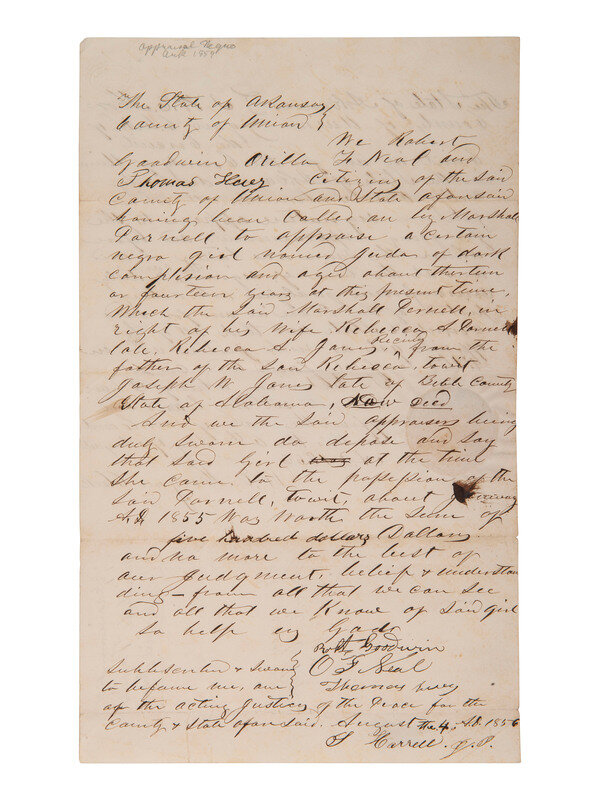 appraisal Negro
Ark 1859
The State of Arkansas
County of Union
We Robert
Goodwin Orilla F Neal and
Thomas citizens of the said
County of Union and State aforesaid
having been called on by Marshall
Parnell to appraise a certain
negro girl named Juda of dark
complexion and aged about thirteen
or fourteen years at this present time,
Which the said Marshall Parnell, in
right of his Wife Rebecca S. Parnell
late, Rebecca S. Jones, from the
father of the said Rebecca, towit
Joseph W. Jones late of Bibb County
State of Alabama, Now Decd
And we the said appraisers being
duly sworn do depose and say
that said Girl at the time
She came to the possession of the
said Parnell, towit, about
A.D. 1855 Was Worth the sum of
five hundred dollars Dollars
and no more to the best of
our Judgment, belief & understan
ding – from all that we can see
and all that we Know of said girl
So help us God
Robt Goodwin
O F Neal
Thomas
Subscribed & Sworn
to before me, one
of the acting Justices of the Peace for the
County & State aforesaid. August the 4, AD. 1856
Harrell J.P.